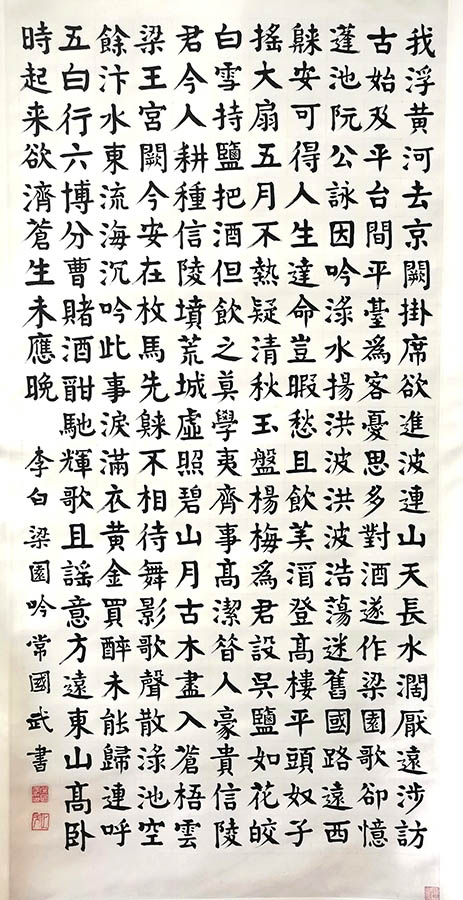 我浮黄河去京闕掛席欲進波連山天長水濶厭遠涉訪
古始及平台間平臺為客憂思多對酒遂作梁園歌卻憶
蓬池阮公詠因吟淥水揚洪波洪波浩蕩迷舊國路遠西
歸安可得人生達命豈暇愁且飲美酒登髙樓平頭奴子
搖大扇五月不熱疑清秋玉盤楊梅為君設吳鹽如花皎
白雪持鹽把酒但飲之莫學夷齊事髙潔昔人豪貴信陵
君今人耕種信陵墳荒城虛照碧山月古木盡入蒼梧雲
梁王宮闕今安在枚馬先歸不相待舞影歌聲散淥池空
餘汴水東流海沉吟此事淚滿衣黄金買醉未能歸連呼
五白行六博分曹賭酒酣馳輝歌且謠意方遠東山髙臥
時起来欲濟蒼生未應晚 李白梁園吟常國武書